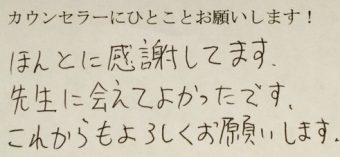 カウンセラーにひとことお願いします!
ほんとに感謝してます.
先生に会えてよかったです.
これからもよろしくお願いします.